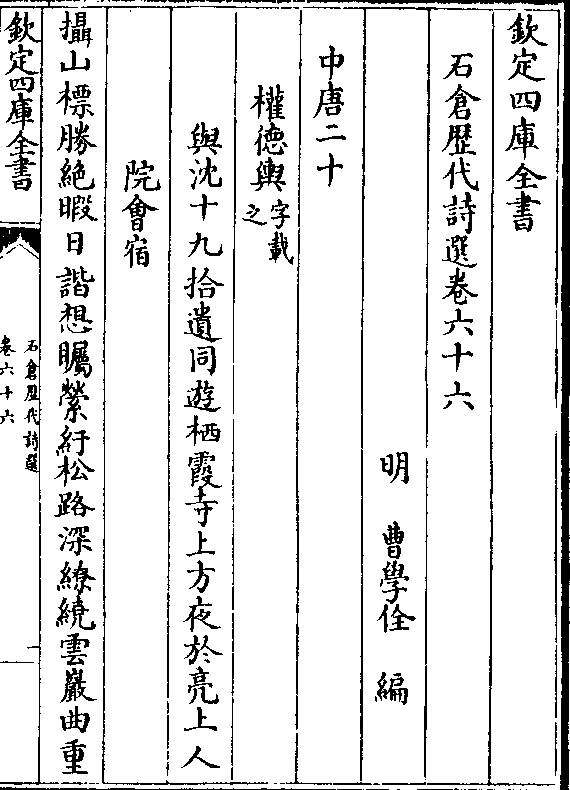 欽定四庫全書
石倉歴代詩選卷六十六
明 曹學佺 編
中唐二十
權德輿字載之
與沈十九拾遺同遊栖霞寺上方夜於亮上人
院會宿
攝山標勝絶暇日諧想矚縈紆松路深繚繞雲巖曲重
欽定四庫全書
石倉歴代詩選
卷六十六
一